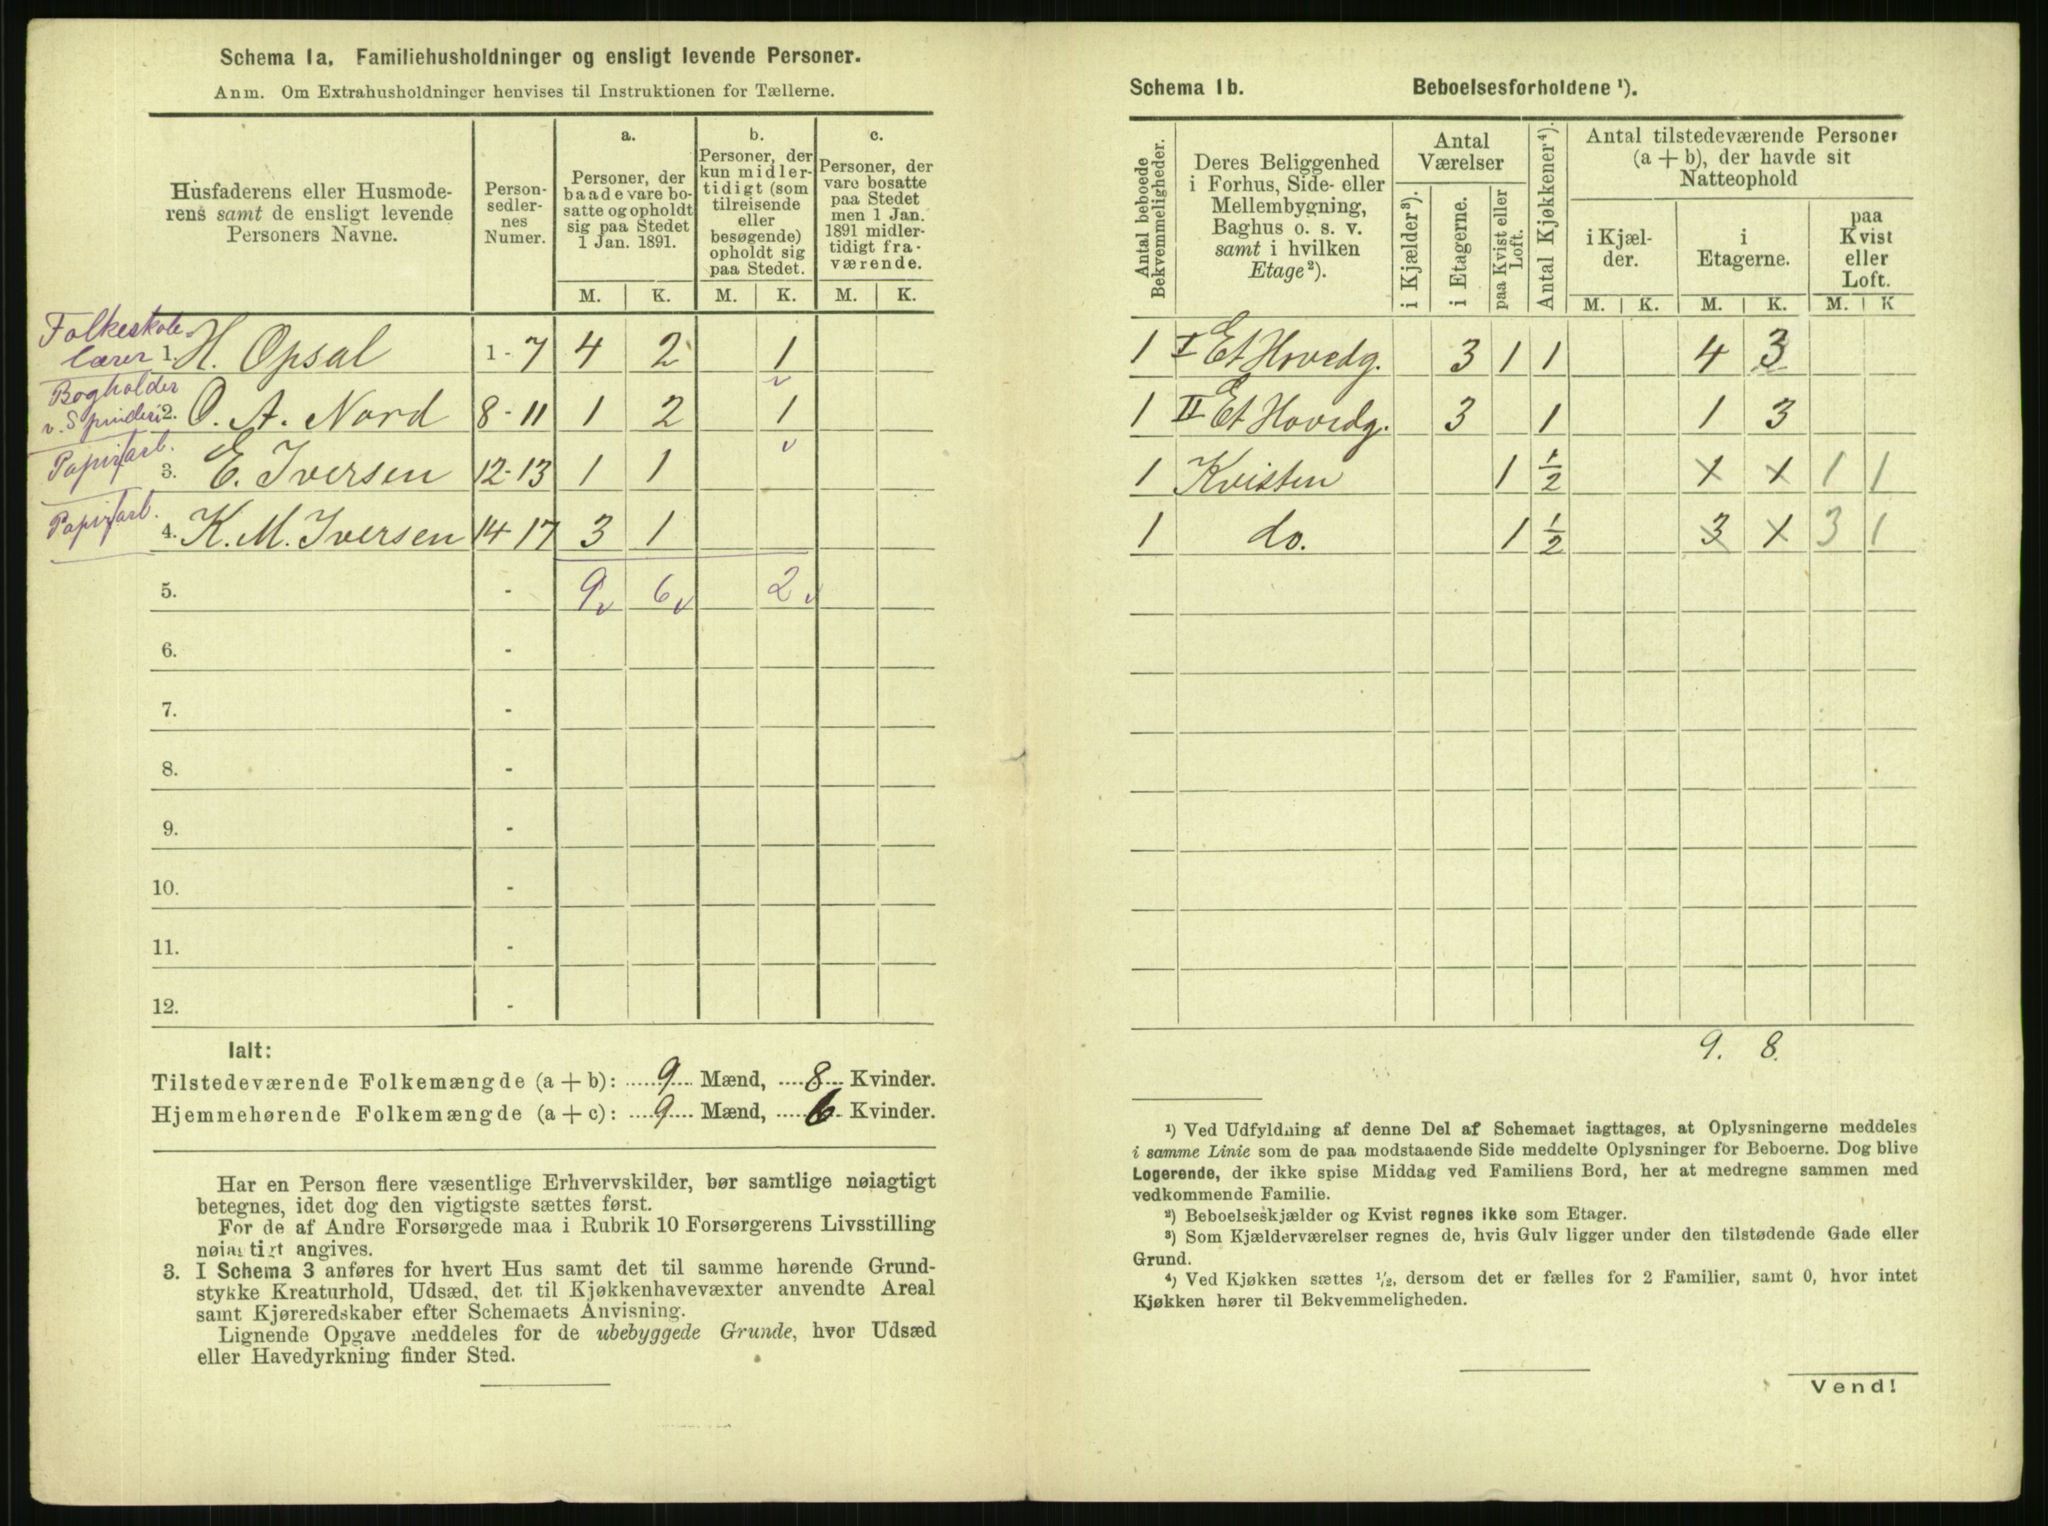 Schema 1a. Familiehusholdninger og ensligt levende Personer.
Anm. Om Extrahusholdninger henvises til Instruktionen for Tællerne.
Husfaderens eller Husmode-
rens samt de ensligt levende
Personers Navne.
Person-
sedler-
nes
Numer.
a.
Personer, der
baade vare bo-
satte og opholdt
sig paa Stedet
1 Jan. 1891.
b.
Personer, der
kun midler-
tidigt (som
tilreisende
eller
besøgende)
opholdt sig
paa Stedet.
c.
Personer, der
vare bosatte
paa Stedet
men 1 Jan.
1891 midler-
tidigt fra-
værende.
M. K. M. K. M. K.
Folkeskole
lærer 1. H. Opsal 1 - 7 4 2 1
Bogholder
v. Spinderi 2. O. A. Nord 8 - 11 1 2 1
Papirfarb. 3. E. Iversen 12 - 13 1 1
Papirfarb. 4. K. M. Iversen 14 - 17 3 1
5. - 9 6 2
6. -
7. -
8. -
9. -
10. -
11. -
12. -
Ialt:
Tilstedeværende Folkemængde (a + b): 9 Mænd, 8 Kvinder.
Hjemmehørende Folkemængde (a + c): 9 Mænd, 6 Kvinder.
Har en Person flere væsentlige Erhvervskilder, bør samtlige nøiagtigt
betegnes, idet dog den vigtigste sættes først.
For de af Andre Forsørgede maa i Rubrik 10 Forsørgerens Livsstilling
nøiagtigt angives.
3. I Schema 3 anføres for hvert Hus samt det til samme hørende Grund-
stykke Kreaturhold, Udsæd, det til Kjøkkenhavevæxter anvendte Areal
samt Kjøreredskaber efter Schemaets Anvisning.
Lignende Opgave meddeles for de ubebyggede Grunde, hvor Udsæd
eller Havedyrkning finder Sted.
Schema 1b. Beboelsesforholdene ¹).
Antal beboede
Bekvemmeligheder.
Deres Beliggenhed
i Forhus, Side- eller
Mellembygning,
Baghus o. s. v.
samt i hvilken
Etage²).
Antal
Værelser
i Kjælder³).
i Etagerne.
paa Kvist eller
Loft.
Antal Kjøkkener⁴).
Antal tilstedeværende Personer
(a + b), der havde sit
Natteophold
i Kjæl-
der.
i
Etagerne.
paa
Kvist
eller
Loft.
M. K. M. K. M. K
1 I Et Hovedg. 3 1 1 4 3
1 II Et Hovedg. 3 1 1 3
1 Kvisten 1 ½ 1 1 1 1
1 do. 1 ½ 3 1 3 1
9. 8.
¹) Ved Udfyldning af denne Del af Schemaet iagttages, at Oplysningerne meddeles
i samme Linie som de paa modstaaende Side meddelte Oplysninger for Beboerne. Dog blive
Logerende, der ikke spise Middag ved Familiens Bord, her at medregne sammen med
vedkommende Familie.
²) Beboelseskjælder og Kvist regnes ikke som Etager.
³) Som Kjælderværelser regnes de, hvis Gulv ligger under den tilstødende Gade eller
Grund.
⁴) Ved Kjøkken sættes ½, dersom det er fælles for 2 Familier, samt 0, hvor intet
Kjøkken hører til Bekvemmeligheden.
Vend!